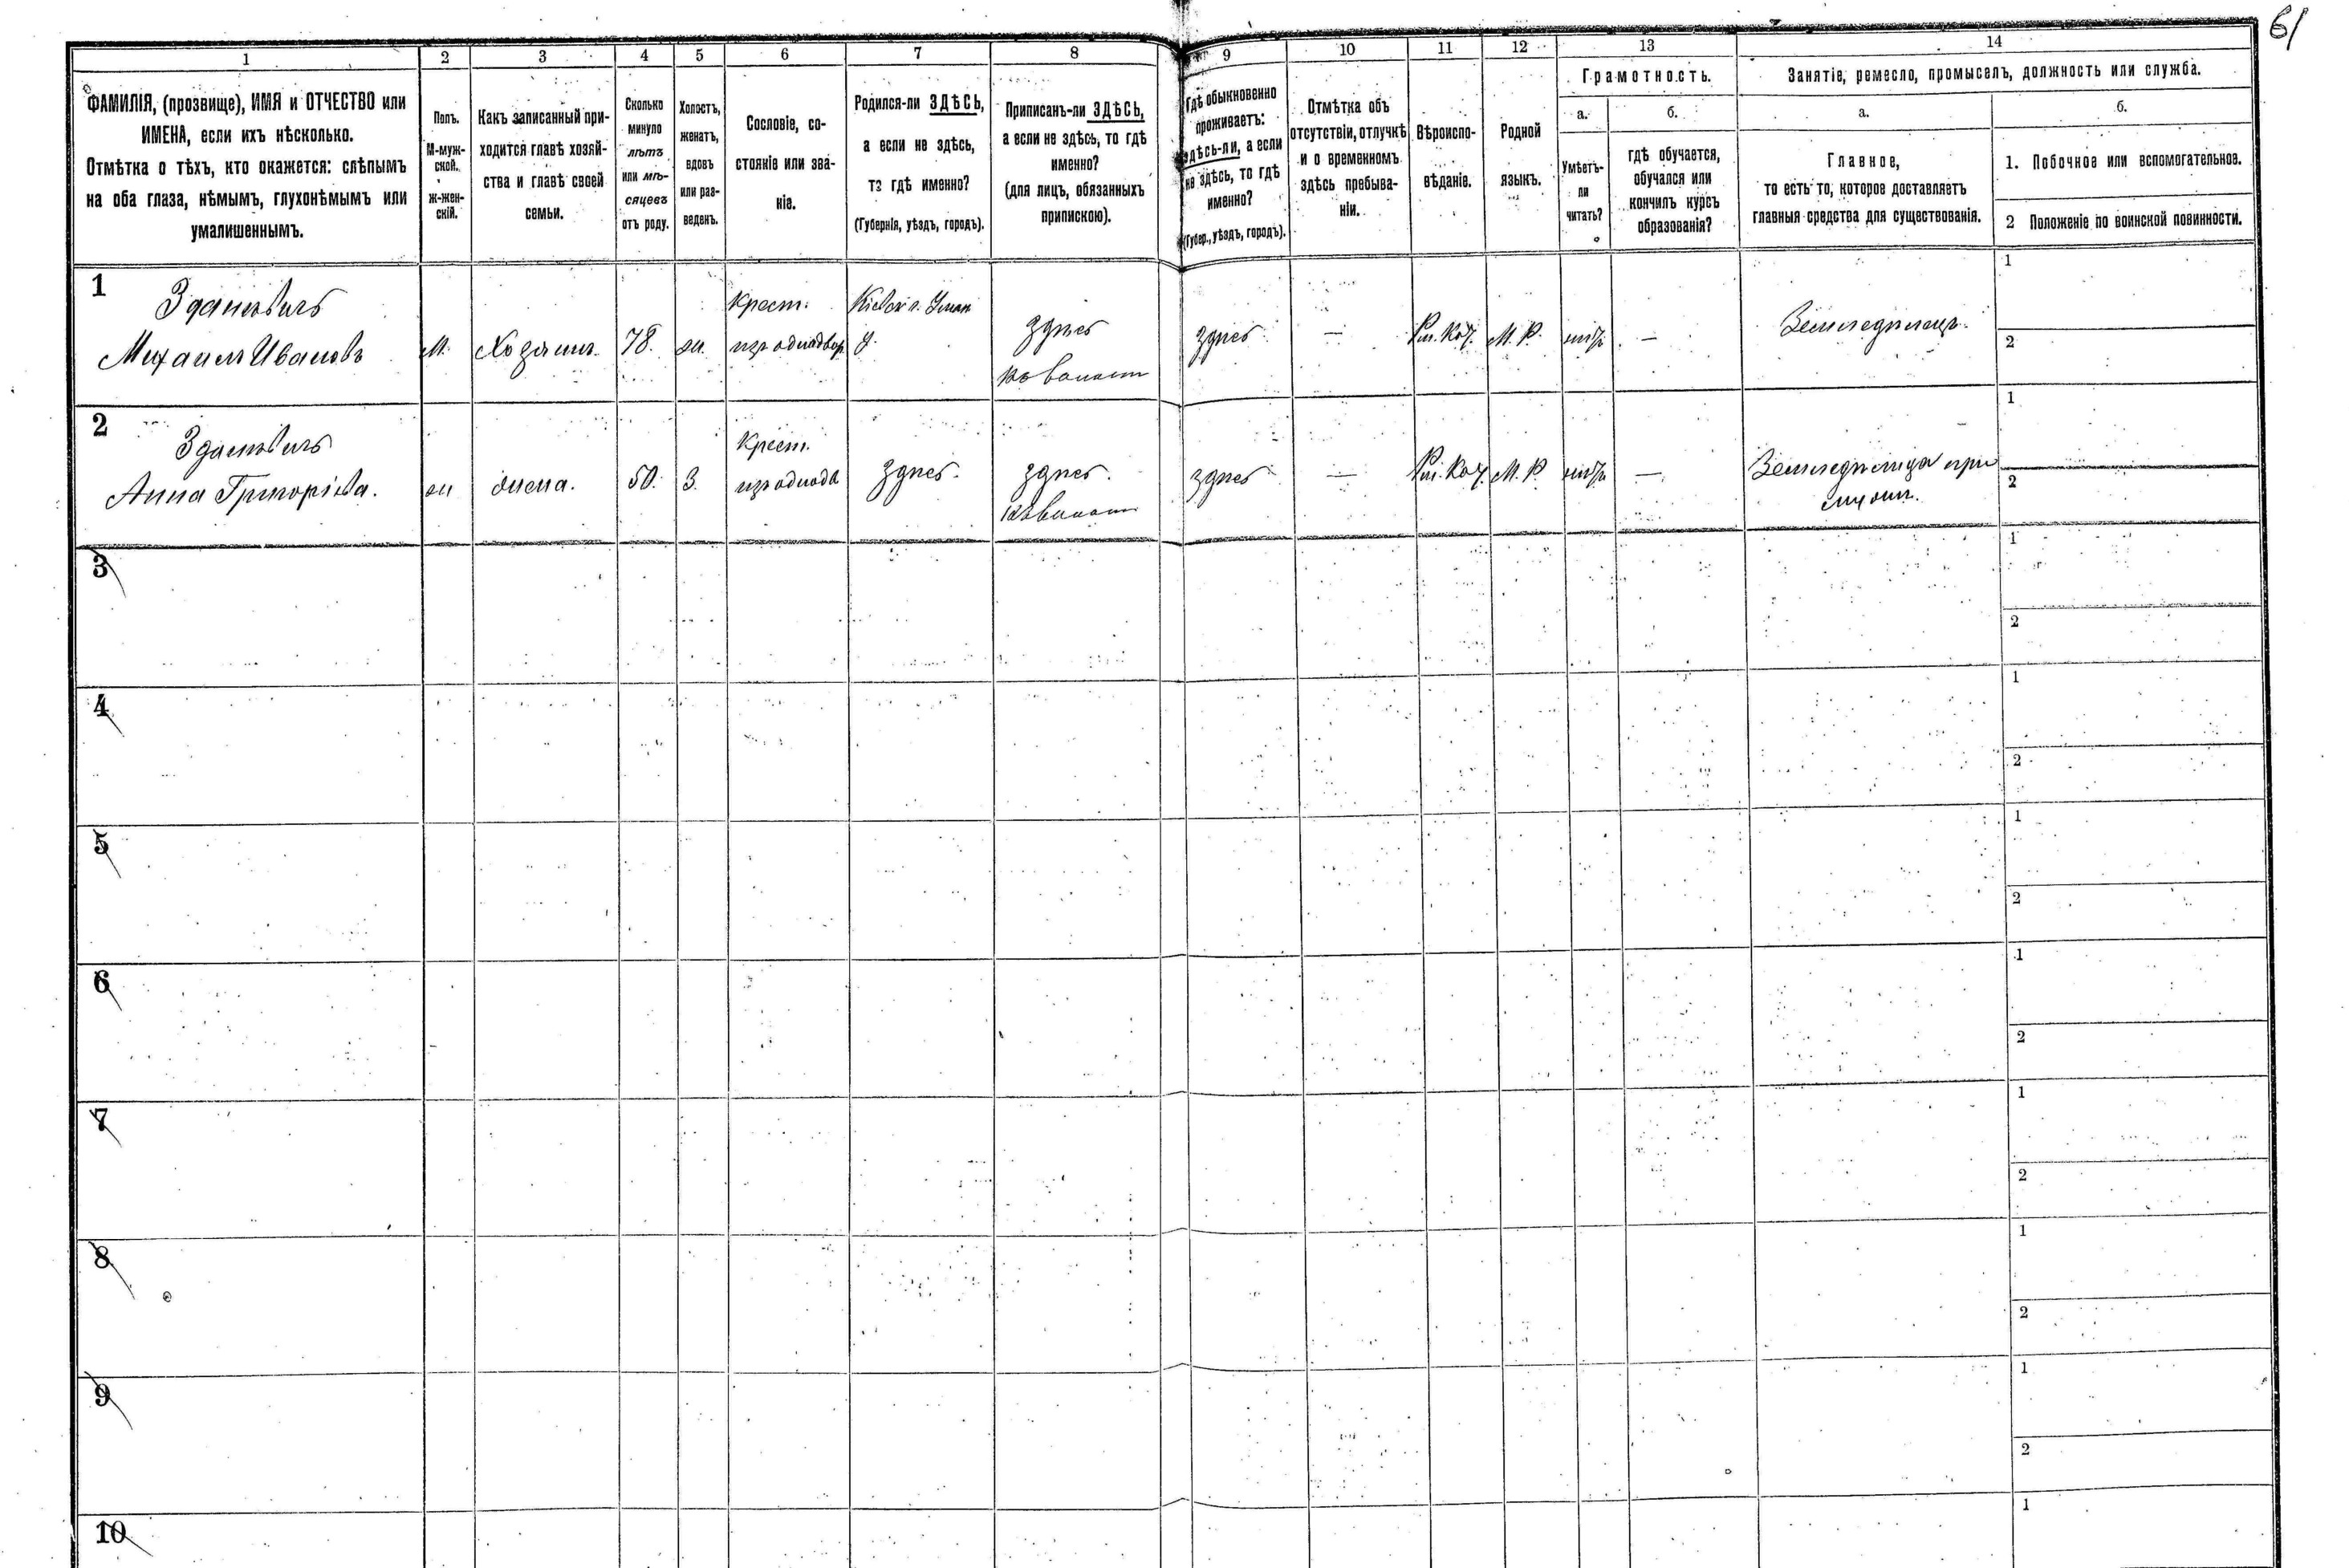 61
1 2 3 4 5 6 7 8 9 10 11 12 13 14
ФАМИЛІЯ, (прозвище), ИМЯ и ОТЧЕСТВО или
ИМЕНА, если ихъ нѣсколько.
Отмѣтка о тѣхъ, кто окажется: слѣпымъ
на оба глаза, нѣмымъ, глухонѣмымъ или
умалишеннымъ.
Полъ.
М-муж-
ской.
ж-жен-
скій.
Какъ записанный при-
ходится главѣ хозяй-
ства и главѣ своей
семьи.
Сколько
минуло
лѣтъ
или мѣ-
сяцевъ
отъ роду.
Холостъ,
женатъ,
вдовъ
или раз-
веденъ.
Сословіе, со-
стояніе или зва-
ніе.
Родился-ли ЗДѢСЬ,
а если не здѣсь,
то гдѣ именно?
(Губернія, уѣздъ, городъ).
Приписанъ-ли ЗДѢСЬ,
а если не здѣсь, то гдѣ
именно?
(для лицъ, обязанныхъ
припискою).
Гдѣ обыкновенно
проживаетъ:
здѣсь-ли, а если
не здѣсь, то гдѣ
именно?
(Губер., уѣздъ, городъ).
Отмѣтка объ
отсутствіи, отлучкѣ
и о временномъ
здѣсь пребыва-
ніи.
Вѣроиспо-
вѣданіе.
Родной
языкъ.
Грамотность.
а.
Умѣетъ-
ли
читать?
б.
гдѣ обучается,
обучался или
кончилъ курсъ
образованія?
Занятіе, ремесло, промыселъ, должность или служба.
а.
Главное,
то есть то, которое доставляетъ
главныя средства для существованія.
б.
1. Побочное или вспомогательное.
2 Положеніе по воинской повинности.
1
Здановичъ
Михаилъ Ивановъ
М.
Хозяинъ.
78.
ж.
Крест.
изъ однодвор
Кіевск г. Уман
у.
Здѣсь
здѣсь
—
Рим. Кат.
М. Р.
—
Земледѣлецъ.
1
2
2
Здановичъ
Анна Григоріева.
ж
жена.
50.
З.
Крест.
изъ однодв
Здѣсь.
здѣсь.
здѣсь
—
Рим. Кат.
М. Р.
—
Земледѣлица при
мужѣ.
1
2
3
1
2
4
1
2
5
1
2
6
1
2
7
1
2
8
1
2
9
1
2
10
1